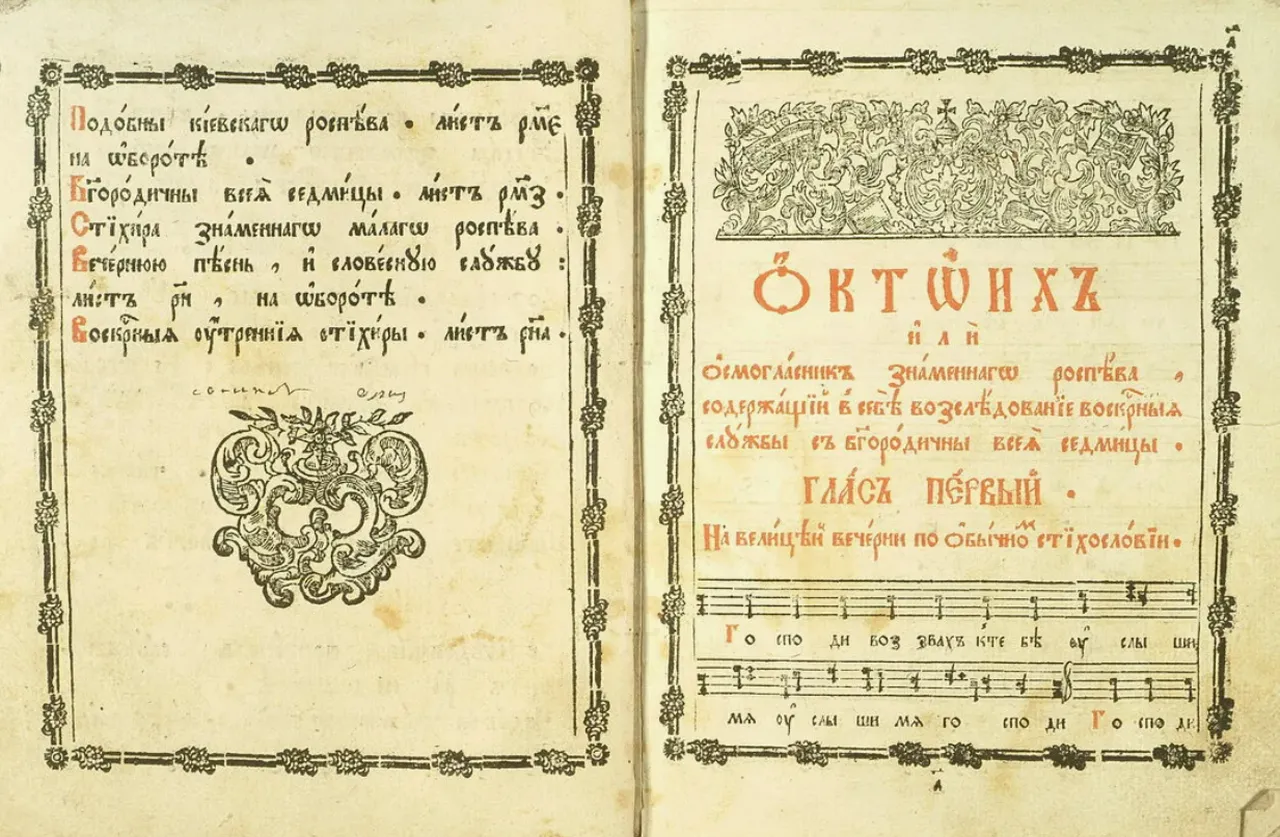 Подо́бны кі́евскагѡ роспѣ́ва . ли́стъ рм҃є
на ѡ҆боро́тѣ .
Бг҃оро́дичны всеѧ̀ седми́цы . ли́стъ рм҃з .
Стїхи́ра зна́меннагѡ ма́лагѡ роспѣ́ва .
Вече́рнюю пѣ́снь , и҆ слове́сную слꙋ́жбꙋ :
ли́стъ рн҃ , на ѡ҆боро́тѣ .
Воскр҇ныѧ ᲂу҆́трєннїѧ стїхи́ры . ли́стъ рн҃а .
а҃
Ѻ҆КТѠ́ИХЪ
и҆лѝ
Ѻ҆смогла́сникъ зна́меннагѡ роспѣ́ва ,
содержа́щїй в̾ себѣ̀ возслѣ́дованїе воскр҇ныѧ
слꙋ́жбы съ бг҃оро́дичны всеѧ̀ седми́цы .
ГЛА́СЪ ПЕ́РВЫЙ .
На вели́цѣй вече́рни по ѻ҆бы́чномъ стїхосло́вїи .
Го спо ди воз звахъ к̾те бѣ ᲂу҆ слы ши
мѧ ᲂу҆ слы ши мѧ го спо ди Го спо ди
а҃